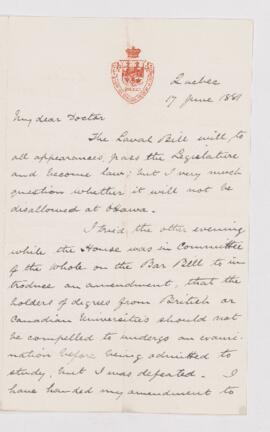 Quebec
17 June 1881
My dear Doctor
The Laval Bill will to
all appearances, pass the Legislature
and become law; but I very much
question whether it will not be
disallowed at Ottawa.
I tried the other evening
while the House was in Committee
of the whole on the Bar Bill to in-
troduce an amendment, that the
holders of degrees from British or
Canadian Universities should not
be compelled to undergo an exami-
nation before being admitted to
study, but I was defeated. - I
have handed my amendment to